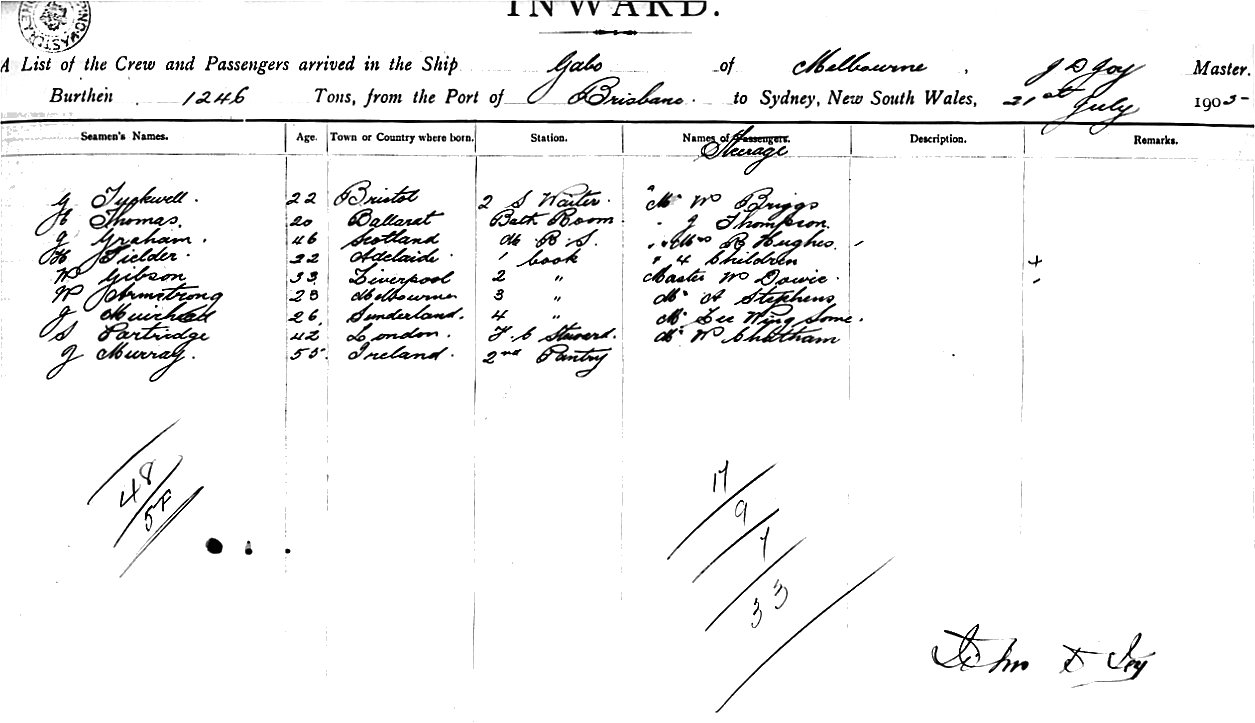 INWARD.
A List of the Crew and Passengers arrived in the Ship Gabo of Melbourne, J D Joy Master.
Burthen 1246 Tons, from the Port of Brisbane. to Sydney, New South Wales, 21st July 1905
Seamen's Names. Age. Town or Country where born. Station. Names of Passengers. Description. Remarks.
Steerage
G Tuckwell. 22 Bristol 2 S Waiter. Mr W Briggs
H Thomas. 20 Ballarat Bath Room. " J Thompson.
J Graham. 46 Scotland M R S. " Mrs R Hughes.
H Fielder. 32 Adelaide. 1 Cook " 4 Children +
W Gibson 33 Liverpool 2 " Master W Dowie.
W Armstrong 23 Melbourne 3 " Mr A Stephens
J Muirhead 26 Sunderland. 4 " Mr Lee Wing Some.
S Partridge 42 London. F. C Steward. Mr W Chatham
J Murray. 55 Ireland. 2nd Pantry
48
17
9
7
33
John D Joy